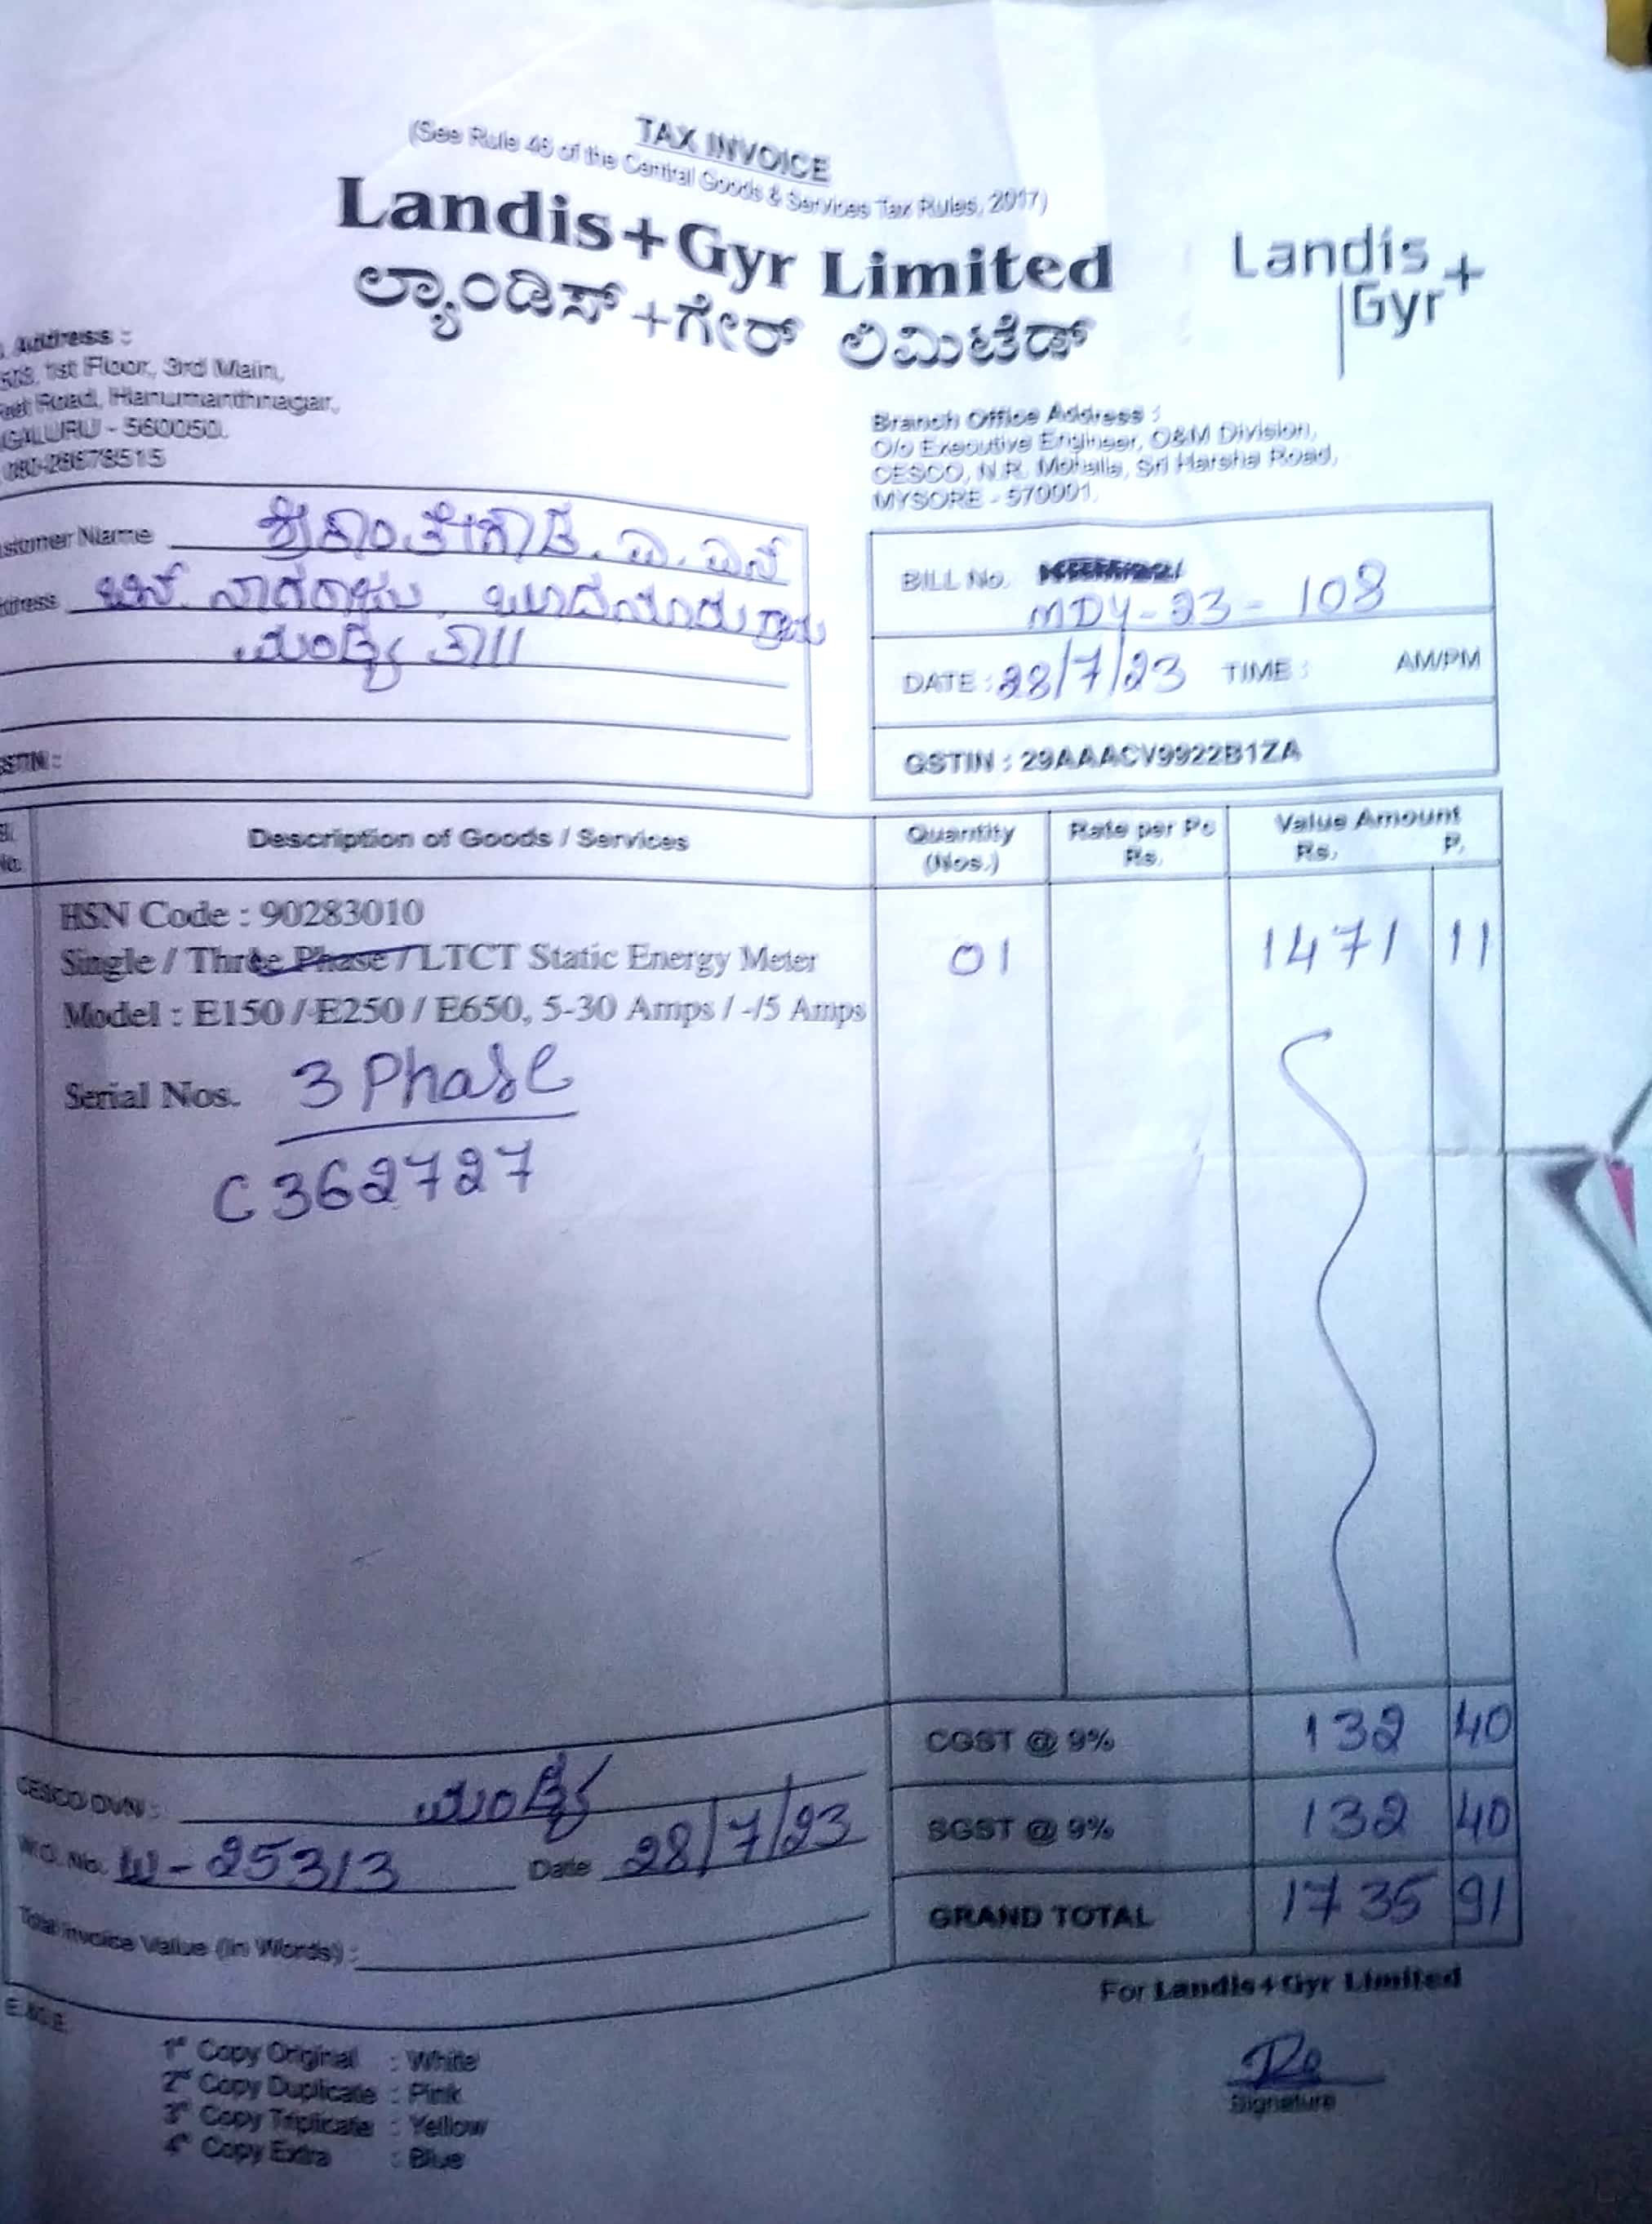 TAX INVOICE
(See Rule 46 of the Central Goods & Services Tax Rules, 2017)
Landis+Gyr Limited
ಲ್ಯಾಂಡಿಸ್+ಗೇರ್ ಲಿಮಿಟೆಡ್
Landis
Gyr+
Address :
1st Floor, 3rd Main,
Road, Hanumanthnagar,
GALURU - 560050.
080-26678515
Branch Office Address :
O/o Executive Engineer, O&M Division,
CESCO, N.R. Mohalla, Sri Harsha Road,
MYSORE - 570001.
stomer Name
dress ಬಿನ್ ನಾಗರಾಜು,
ಮಂಡ್ಯ ತಾ||
GSTIN :
BILL No.
MDY-23-108
DATE : 28/7/23 TIME : AM/PM
GSTIN : 29AAACV9922B1ZA
Sl. No. Description of Goods / Services Quantity (Nos.) Rate per Pc Rs. Value Amount Rs. P.
HSN Code : 90283010
Single / Three Phase / LTCT Static Energy Meter 01 1471 11
Model : E150 / E250 / E650, 5-30 Amps / -/5 Amps
Serial Nos. 3 Phase
C362727
CGST @ 9% 132 40
CESCO DVN : ಮಂಡ್ಯ
SGST @ 9% 132 40
W.O. No. W-25313 Date 28/7/23
GRAND TOTAL 1735 91
Total Invoice Value (In Words) :
For Landis+Gyr Limited
E.&O.E.
1st Copy Original : White
2nd Copy Duplicate : Pink
3rd Copy Triplicate : Yellow
4th Copy Extra : Blue
Signature